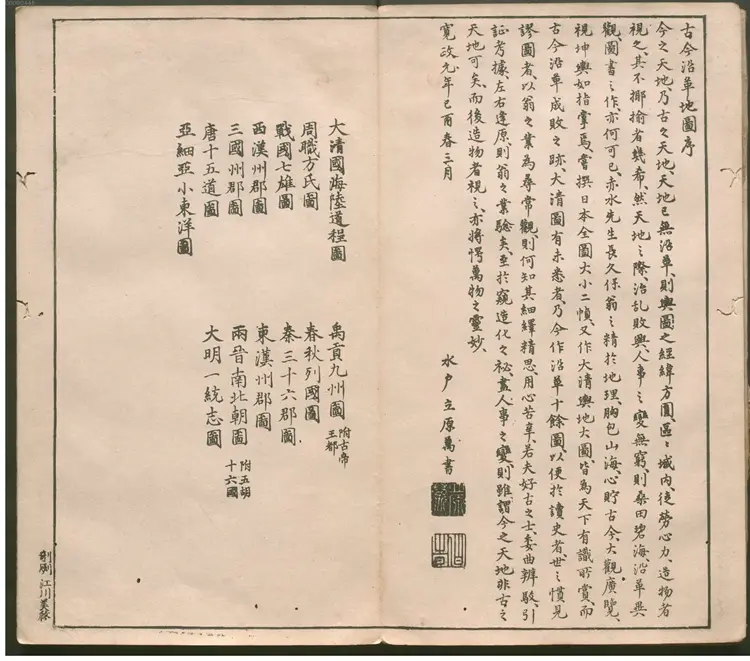 古今沿革地圖序
今之天地、乃古之天地、天地已無沿革、則輿圖之經緯方圓、區々域內、徒勞心力、造物者
視之、其不揶揄者幾希、然天地之際、治乱敗興、人事之變無窮、則桑田碧海、沿革異
觀、圖書之作、亦何可已、赤水先生長久保翁之精於地理、胸包山海、心貯古今、大觀廣覽、
視坤輿如指掌焉、嘗撰日本全圖大小二幀、又作大清輿地大圖、皆為天下有識所賞、而
古今沿革成敗之跡、大清圖有未悉者、乃今作沿革十餘圖、以便於讀史者、世之慣見
謬圖者、以翁之業為尋常觀、則何知其細繹精思、用心苦辛、若夫好古之士、委曲辨駁、引
証考據、左右逢原、則翁之業驗矣、至於窺造化之祕、盡人事之變、則雖謂今之天地非古之
天地可矣、而後造物者視之、亦將愕萬物之靈妙、
寬政元年己酉春三月
水戶立原萬書
大清國海陸道程圖
禹貢九州圖 附古帝王都
周職方氏圖
春秋列國圖
戰國七雄圖
秦三十六郡圖
西漢州郡圖
東漢州郡圖
三國州郡圖
兩晉南北朝圖 附五胡十六國
唐十五道圖
大明一統志圖
亞細亞小東洋圖
剞劂 江川美啓